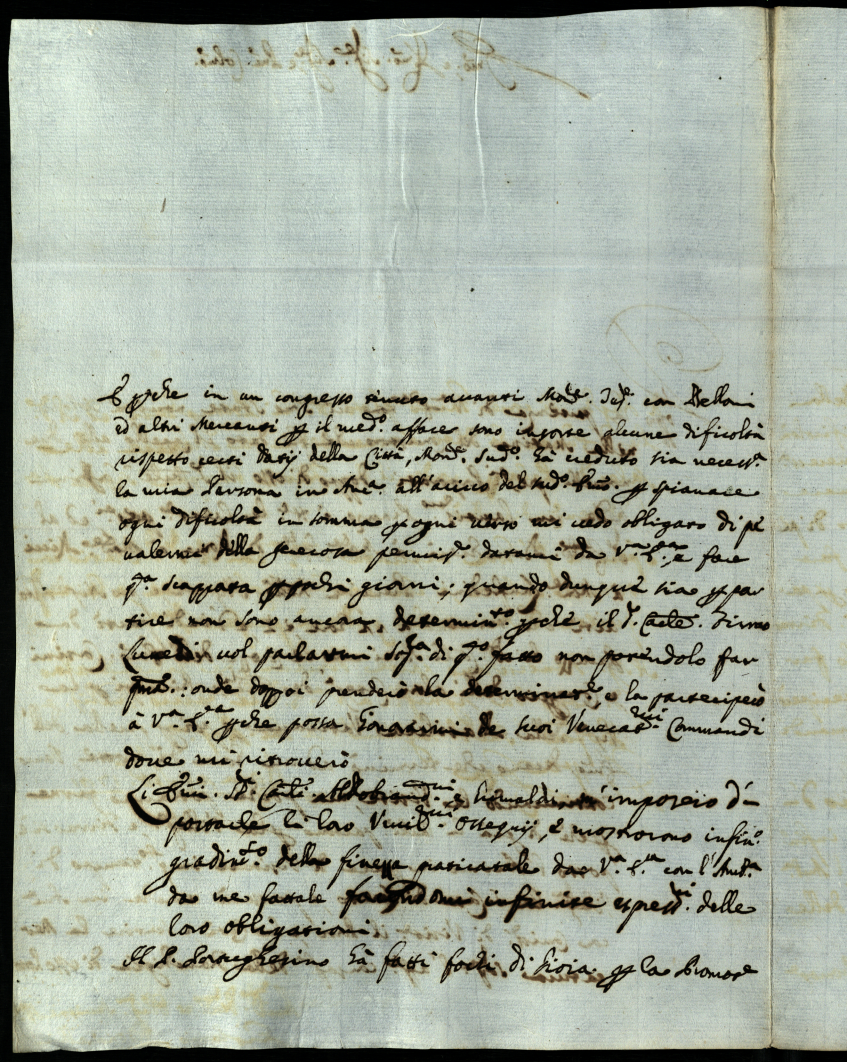 E perche in un congresso tenuto avanti Mons.r Tes.re con Belloni
ed altri Mercanti per il med.o affare sono insorte alcune dificoltà
rispetto certi datij della Città, Mons.r Sud.o hà creduto sia necess.a
la mia Persona in An.a all'arivo del sud.o per spianare
ogni dificoltà in somma per ogni verso mi vedo obligato di
valermi della generosa permis.e datami da V.a E.a e fare
q.a scappata per pochi giorni; quando dunque sia per par
tire non sono ancora determin.to perche il S. Carle.
Lunedi vol parlarmi Sop.a di q.o fatto non potendolo far
onde doppoi prenderò la determinat.e, e la parteciperò
à V.a E.a perche possa honorarmi de suoi Venerat.mi Commandi
dove mi ritroverò
Li SS.ri e Grimaldi m'imposero di
portarle li loro Umil.mi Ossequij, e mostrorono infin.o
gradim.to della finezza praticatale da V.a E.a con l'Amb.a
da me fattale facendomi infinite espress.ni delle
loro obligazioni
Il P. Borughesino hà fatti fochi di Gioia per la Promot.e